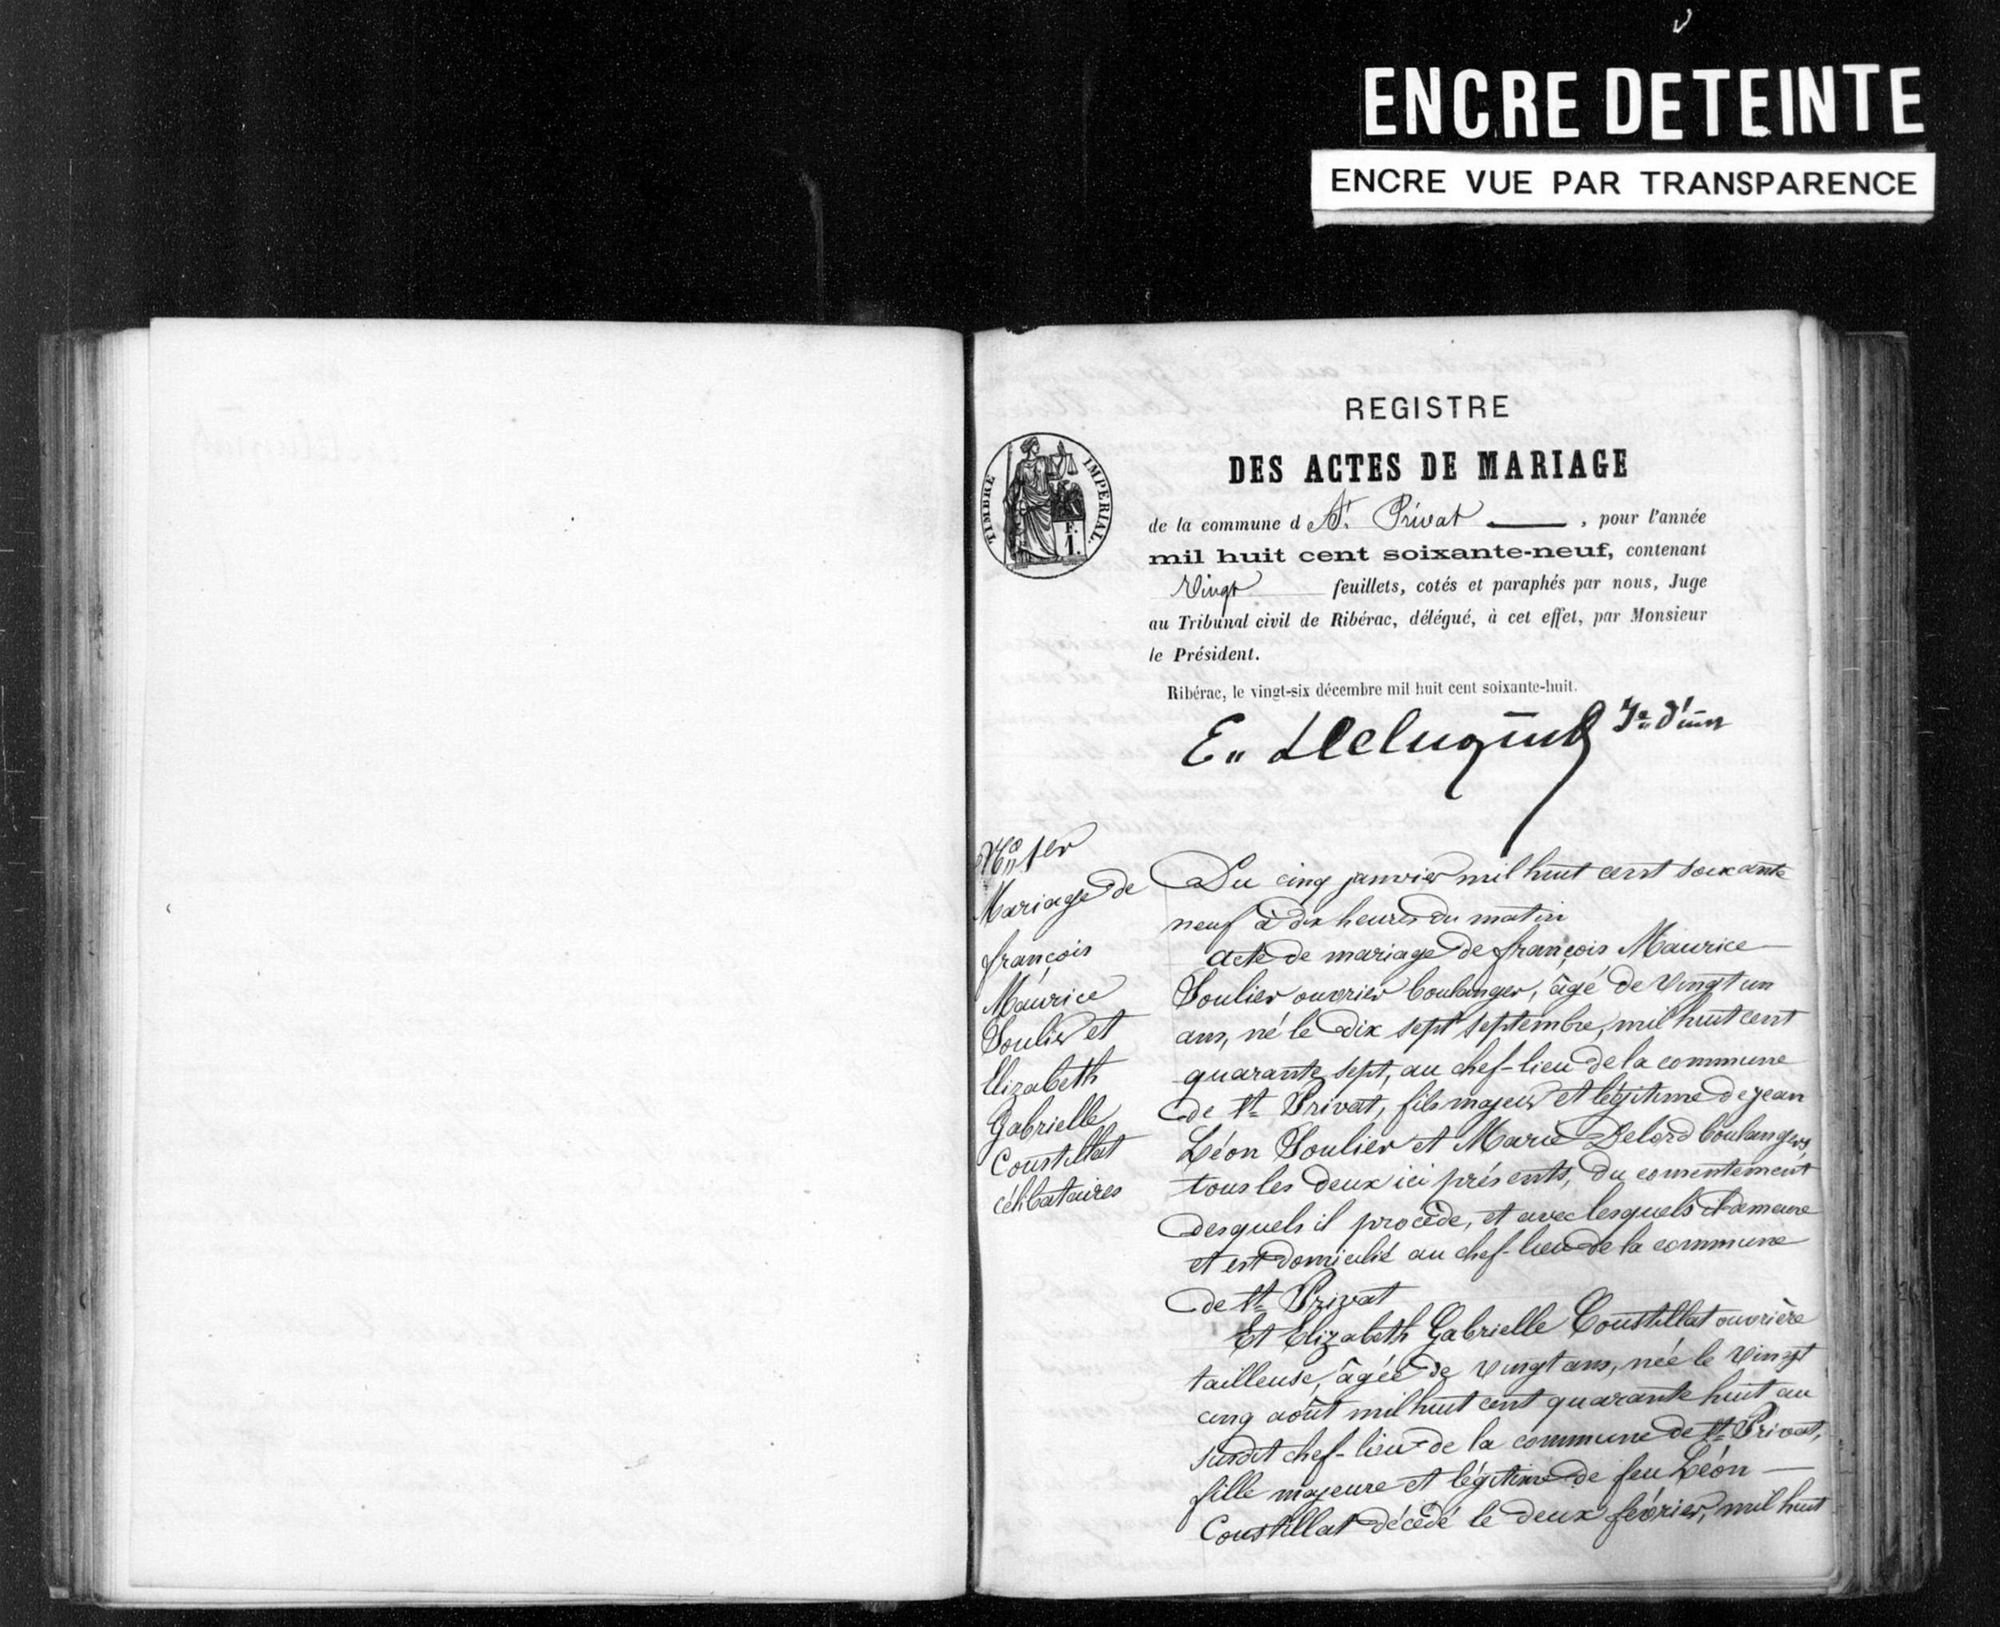 ENCRE DÉTEINTE
ENCRE VUE PAR TRANSPARENCE
REGISTRE
DES ACTES DE MARIAGE
TIMBRE IMPERIAL.
F.
1.
de la commune d St. Privat, pour l'année
mil huit cent soixante-neuf, contenant
Vingt feuillets, cotés et paraphés par nous, Juge
au Tribunal civil de Ribérac, délégué, à cet effet, par Monsieur
le Président.
Ribérac, le vingt-six décembre mil huit cent soixante-huit.
No 1er
Mariage de
françois
Maurice
Soulier et
Elizabeth
Gabrielle
Coustillat
célibataires
Du cinq janvier mil huit cent soixante
neuf à dix heures du matin
Acte de mariage de françois Maurice
Soulier ouvrier boulanger, âgé de vingt un
ans, né le dix sept septembre, mil huit cent
quarante sept, au chef-lieu de la commune
de St Privat, fils majeur et légitime de jean
Léon Soulier et Marie Delord boulangers,
tous les deux ici présents, du consentement
desquels il procède, et avec lesquels il demeure
et est domicilié au chef-lieu de la commune
de St Privat
Et Elizabeth Gabrielle Coustillat ouvrière
tailleuse, âgée de vingt ans, née le vingt
cinq août mil huit cent quarante huit au
susdit chef-lieu de la commune de St Privat,
fille majeure et légitime de feu Léon
Coustillat décédé le deux février, mil huit